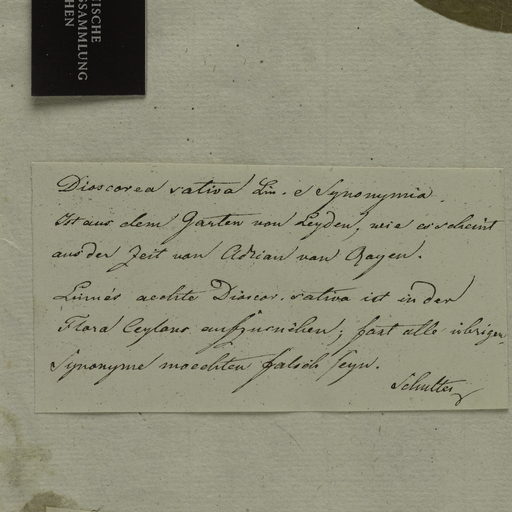 NISCHE
TSSAMMLUNG
CHEN
Dioscorea sativa Lin. e Synonymia.
Ist aus dem Garten von Leyden, wie es scheint
aus der Zeit von Adrian van Royen.
Linnés aechte Dioscor. sativa ist in der
Flora Ceylans aufzusuchen; fast alle übrigen
Synonyme moechten falsch seyn.
Schultes